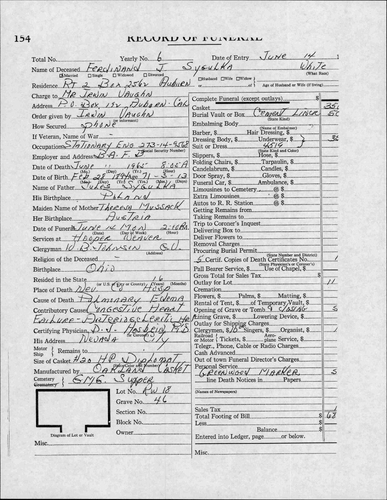 154 RECORD OF FUNERAL
Total No. Yearly No. 6 Date of Entry June 14
Name of Deceased Ferdinand J Sygulka White
Married Single Widowed Divorced Husband Wife Widow (What Race)
Residence Rt 2 Box 2562 Auburn Age of Husband or Wife (if living)
Charge to Mr Irvin Vaughn
Address P.O. Box 192 Auburn Cal
Order given by Irvin Vaughn
How Secured Phone
Veteran of War
Occupation Stationary Eng 273-14-9568
(Social Security Number)
Employer and Address
Date of Death June 1965 8:05 A
Date of Birth Feb 22 1894 Age 71-3-13
Name of Father Sygulka
His Birthplace Poland
Maiden Name of Mother Mussack
Her Birthplace Austria
Date of Funeral June 14 Mon 2:10 P.
Services at Hooper Weaver
Clergyman W.B. Johnson G.V.
Religion of the Deceased
Birthplace Ohio
Resided in the State 16
Place of Death Nev. Hosp
Cause of Death Pulmonary Edema
Contributory Causes Congestive Heart
Failure - Heart
Certifying Physician
His Address Nevada City
Motor Ship Remains to
Size of Casket H20 HP Diplomat
Manufactured by Oakland Casket
Cemetery Crematory
Lot No. RW 18
Grave No. 46
Section No.
Block No.
Owner
Diagram of Lot or Vault
Misc.
Complete Funeral (except outlays) $
Casket 35
Burial Vault or Box Cement Liner
(State Kind)
Embalming Body
(Name of Embalmer)
Barber, $ Hair Dressing, $
Dressing Body, $ Underwear $
Suit or Dress 4516
(State Kind and Color)
Slippers, $ Hose, $
Folding Chairs, $ Tarpaulin, $
Candelabrum, $ Candles, $
Door Spray, $ Gloves, $
Funeral Car, $ Ambulance, $
Limousines to Cemetery @ $
Extra Limousines @ $
Autos to R. R. Station @ $
Getting Remains from
Taking Remains to
Trip to Coroner's Inquest
Delivering Box to
Deliver Flowers to
Removal Charges
Procuring Burial Permit
(State Number and District)
Certif. Copies of Death Certificates No. 1
(State Physician's or Coroner's)
Pall Bearer Service, $ Use of Chapel, $
Gross Total for Sales Tax $
Outlay for Lot 11
Cremation
Flowers, $ Palms, $ Matting, $
Rental of Tent, $ of Temporary Vault, $
Opening of Grave or Tomb 9 Using $ 5
Lining Grave, $ Lowering Device, $
Outlay for Shipping Charges
Clergyman, $ Singers, $ Organist, $
Railroad or Motor Tickets, $ Aero-plane Service, $
Telegr., Phone, Cable or Radio Charges
Cash Advanced
Out of town Funeral Director's Charges
Personal Service
Greenwood Marker 5
line Death Notices in Papers $
(Names of Newspapers)
Sales Tax $
Total Footing of Bill $
Less $
Balance $
Entered into Ledger, page or below.
Misc.